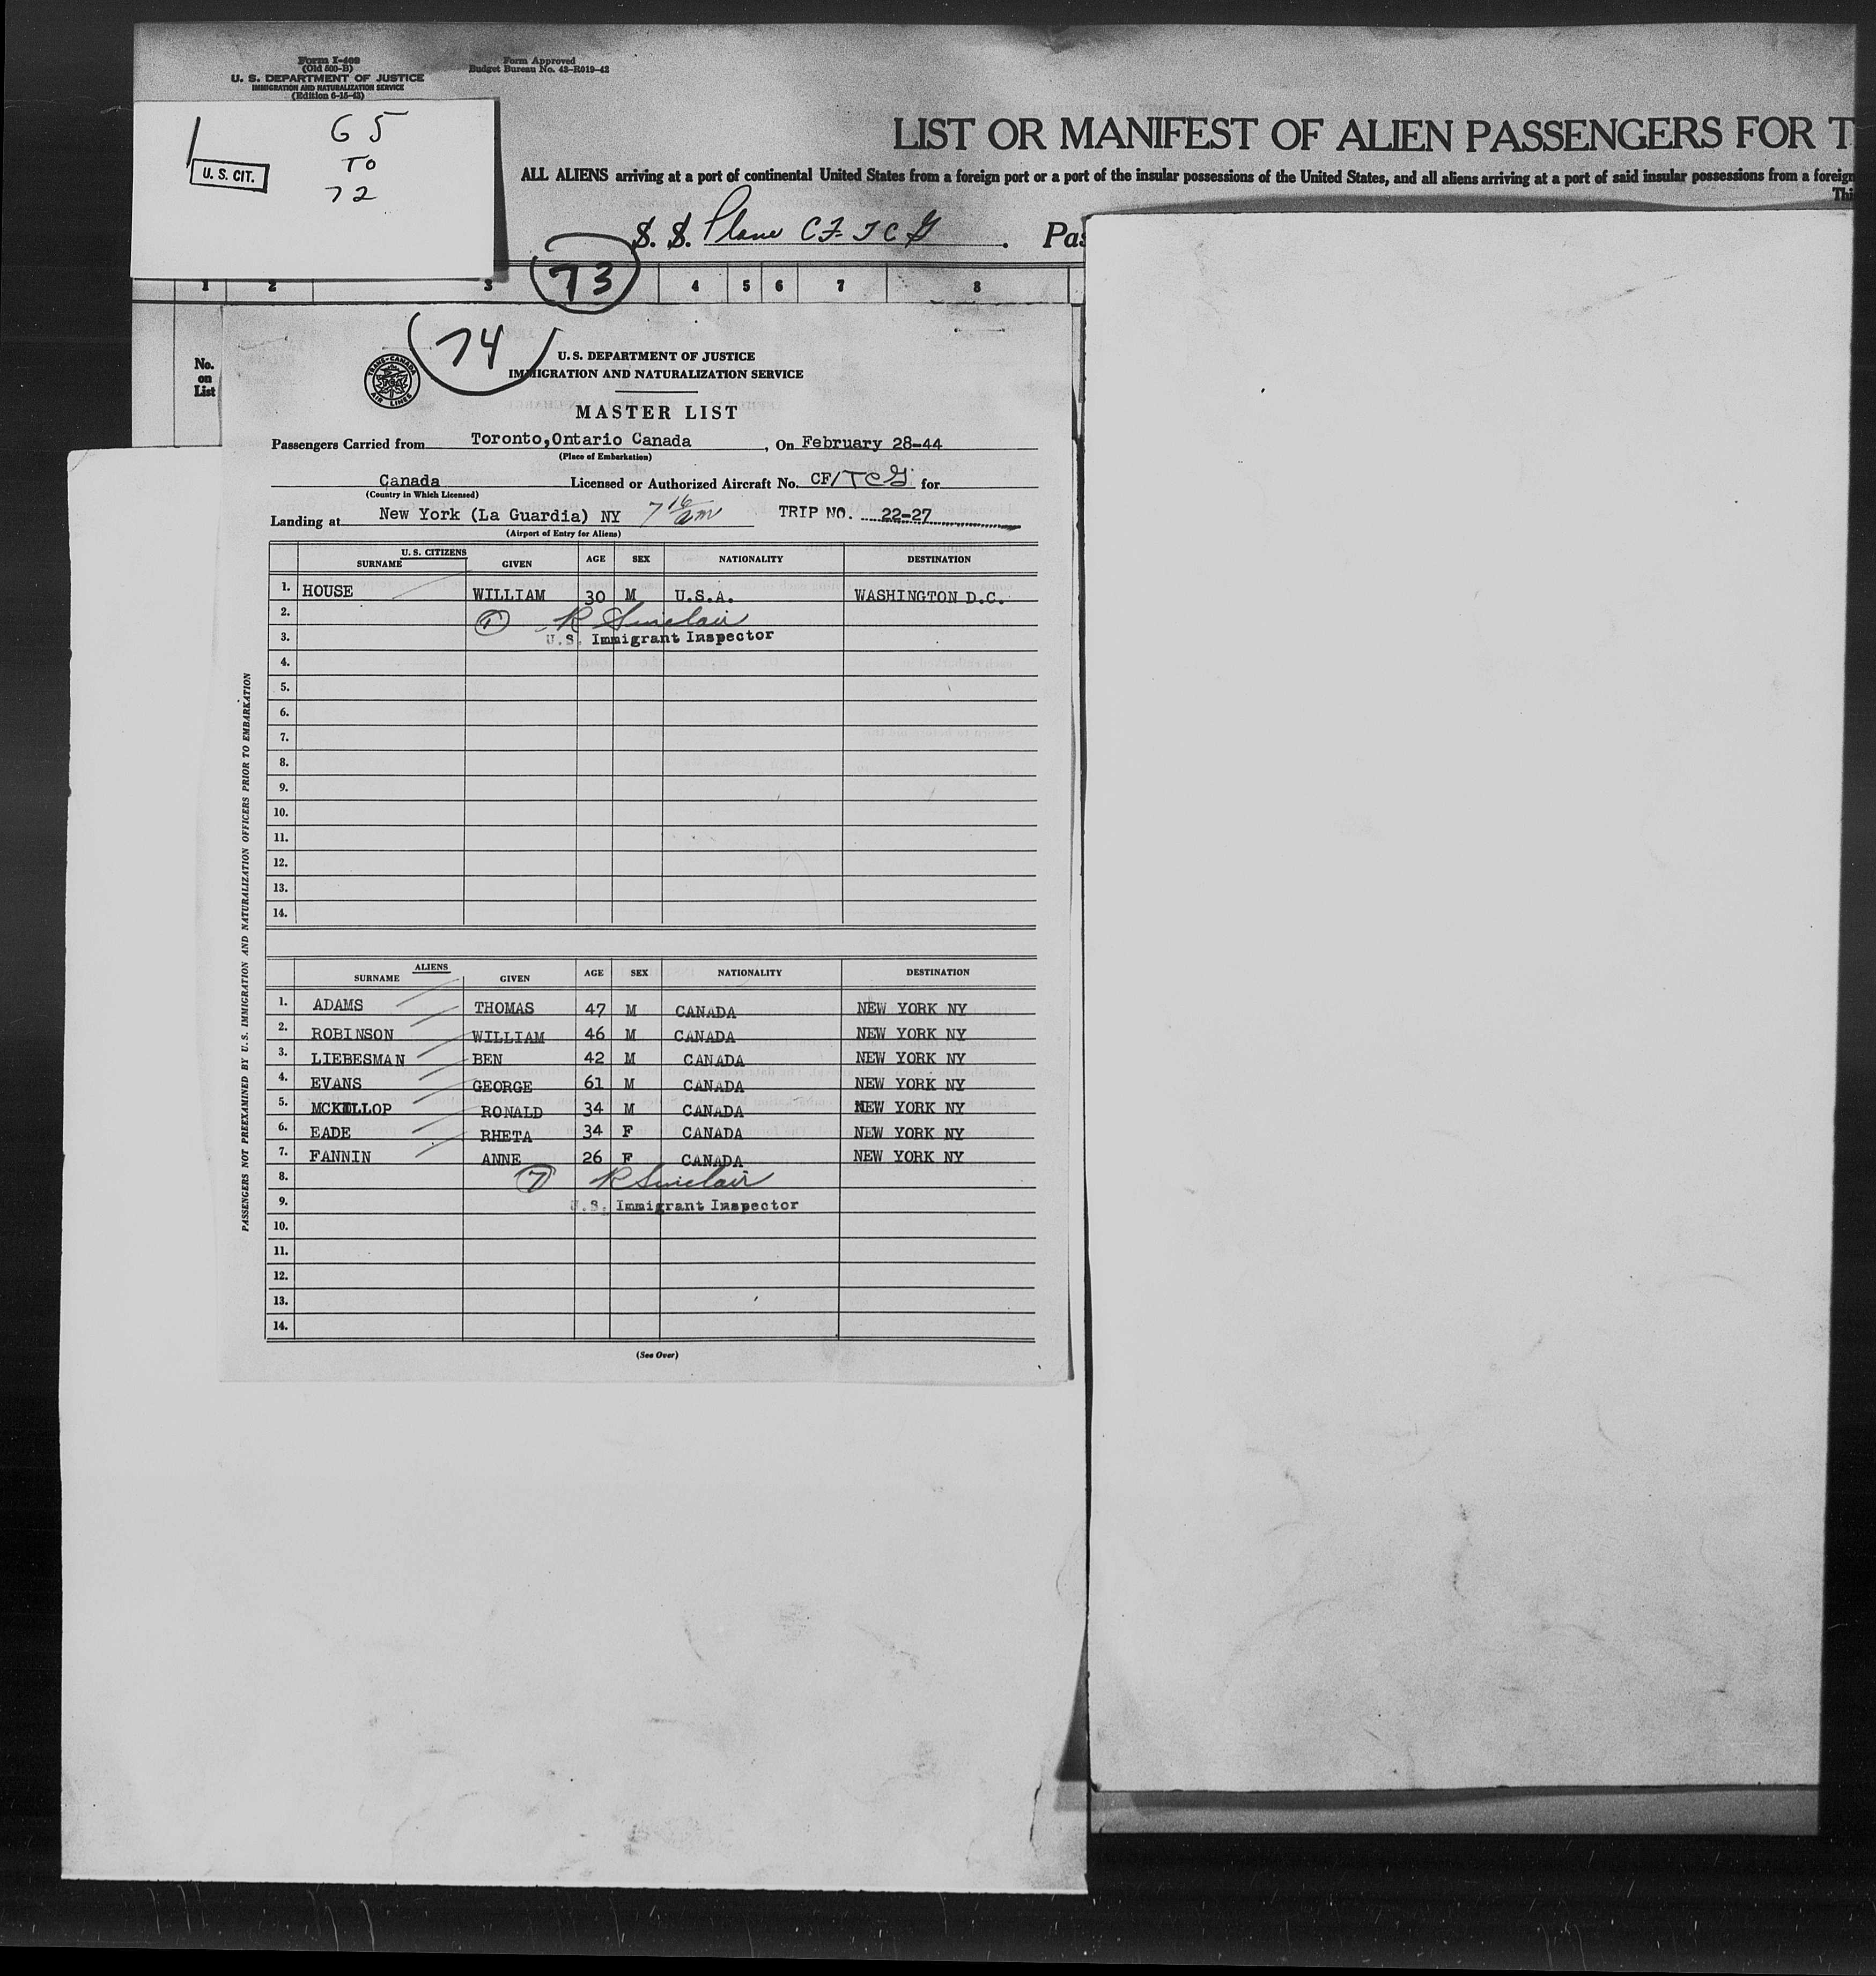 Form I-409
(Old 500-B)
U. S. DEPARTMENT OF JUSTICE
IMMIGRATION AND NATURALIZATION SERVICE
(Edition 6-15-43)
Form Approved
Budget Bureau No. 43-R019-42
65
TO
72
U. S. CIT.
LIST OR MANIFEST OF ALIEN PASSENGERS FOR T
ALL ALIENS arriving at a port of continental United States from a foreign port or a port of the insular possessions of the United States, and all aliens arriving at a port of said insular possessions from a foreign
Thi
S. S. Plane CF-TCG . Pas
73
1 2 3 4 5 6 7 8
No. on List
74
TRANS-CANADA AIR LINES
U. S. DEPARTMENT OF JUSTICE
IMMIGRATION AND NATURALIZATION SERVICE
MASTER LIST
Passengers Carried from Toronto,Ontario Canada , On February 28-44
(Place of Embarkation)
Canada Licensed or Authorized Aircraft No. CF/TCG for
(Country in Which Licensed)
Landing at New York (La Guardia) NY 7 16 am TRIP NO. 22-27
(Airport of Entry for Aliens)
U. S. CITIZENS
SURNAME GIVEN AGE SEX NATIONALITY DESTINATION
1. HOUSE WILLIAM 30 M U.S.A. WASHINGTON D.C.
2. 1 R Sinclair
3. U.S. Immigrant Inspector
4.
5.
6.
7.
8.
9.
10.
11.
12.
13.
14.
ALIENS
SURNAME GIVEN AGE SEX NATIONALITY DESTINATION
1. ADAMS THOMAS 47 M CANADA NEW YORK NY
2. ROBINSON WILLIAM 46 M CANADA NEW YORK NY
3. LIEBESMAN BEN 42 M CANADA NEW YORK NY
4. EVANS GEORGE 61 M CANADA NEW YORK NY
5. MCKILLOP RONALD 34 M CANADA NEW YORK NY
6. EADE RHETA 34 F CANADA NEW YORK NY
7. FANNIN ANNE 26 F CANADA NEW YORK NY
8. 7 R Sinclair
9. U.S. Immigrant Inspector
10.
11.
12.
13.
14.
(See Over)
PASSENGERS NOT PREEXAMINED BY U.S. IMMIGRATION AND NATURALIZATION OFFICERS PRIOR TO EMBARKATION